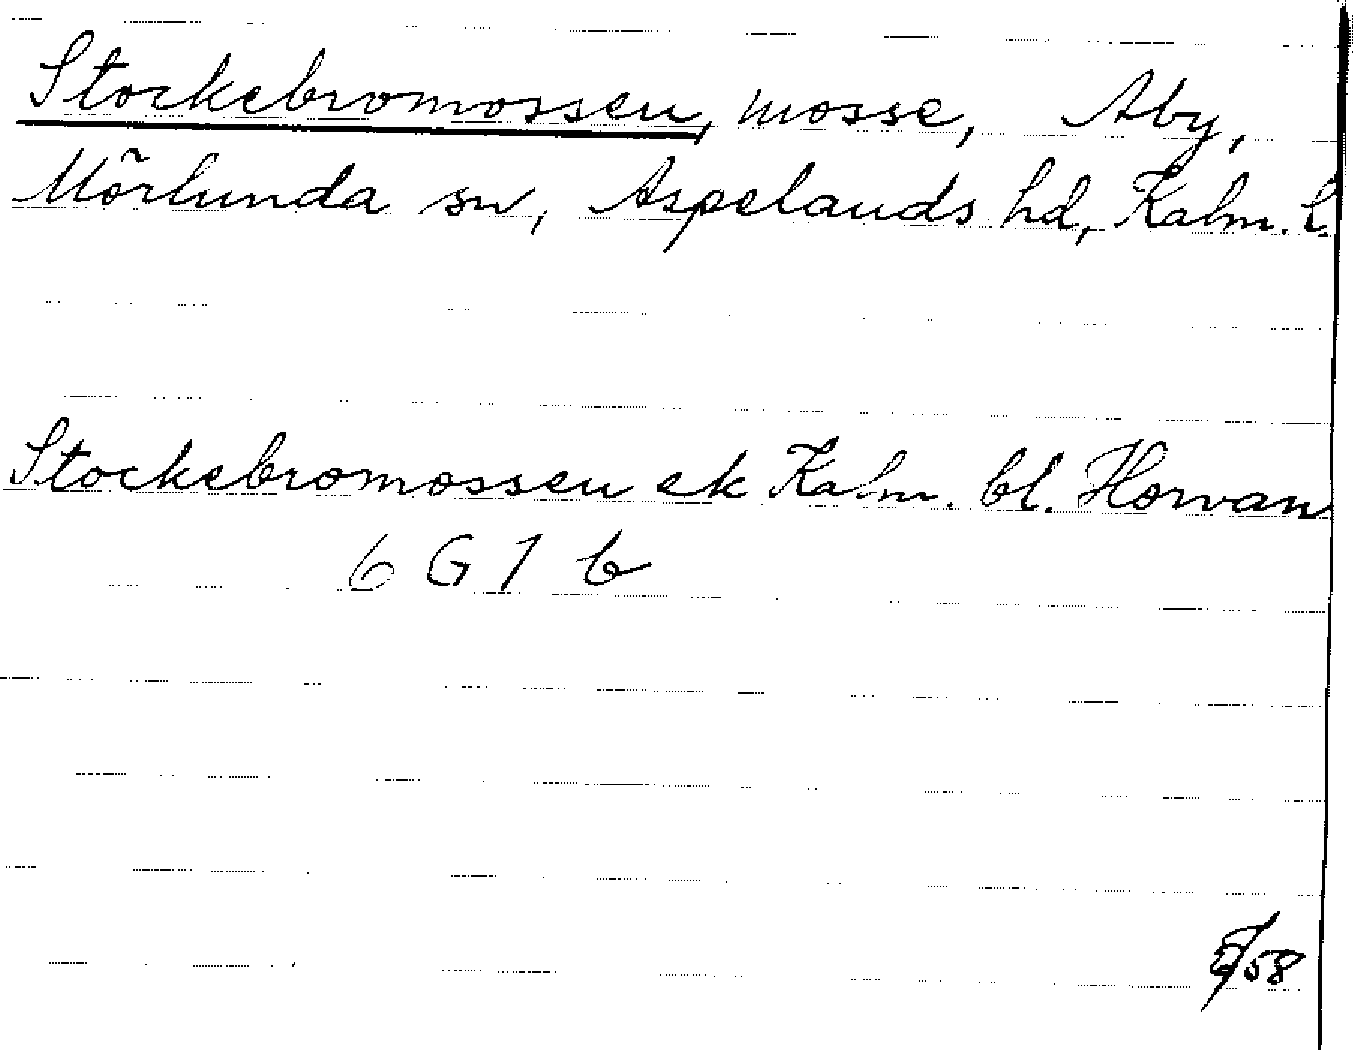 Stockebromossen, mosse, Aby,
Mörlunda sn, Aspelands hd, Kalm. l.
Stockebromossen ek Kalm. bl. Horvan
6 G 1 b
/58